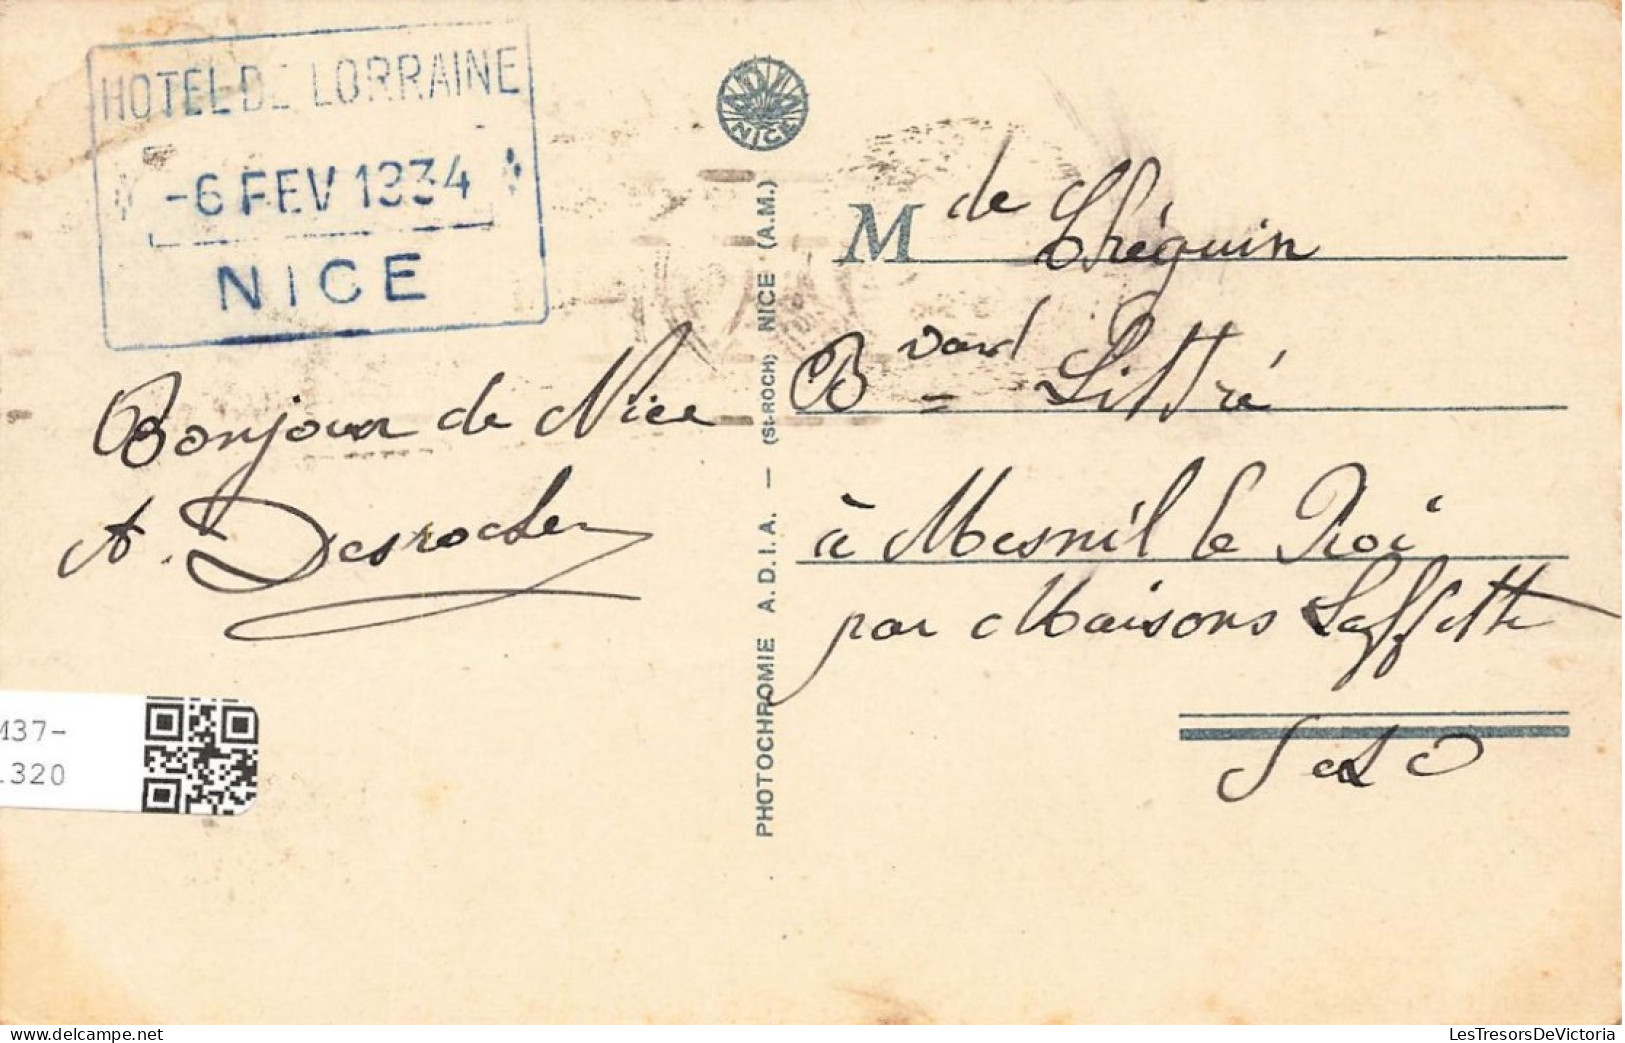 HOTEL DE LORRAINE
-6 FEV 1934
NICE
ADIA
NICE
Bonjour de Nice
A. Desroches
PHOTOCHROMIE A.D.I.A. — (St-ROCH) NICE (A.M.)
Mde Théguin
Bvard Littré
à Mesnil le Roi
par Maisons Laffitte
S et O
M37-
.320
LesTresorsDeVictoria